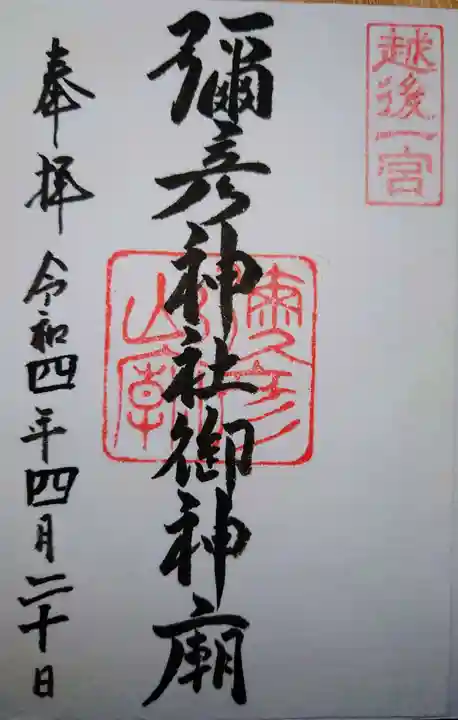 越後一宮
彌彦神社御神廟
奉拝 令和四年四月二十日